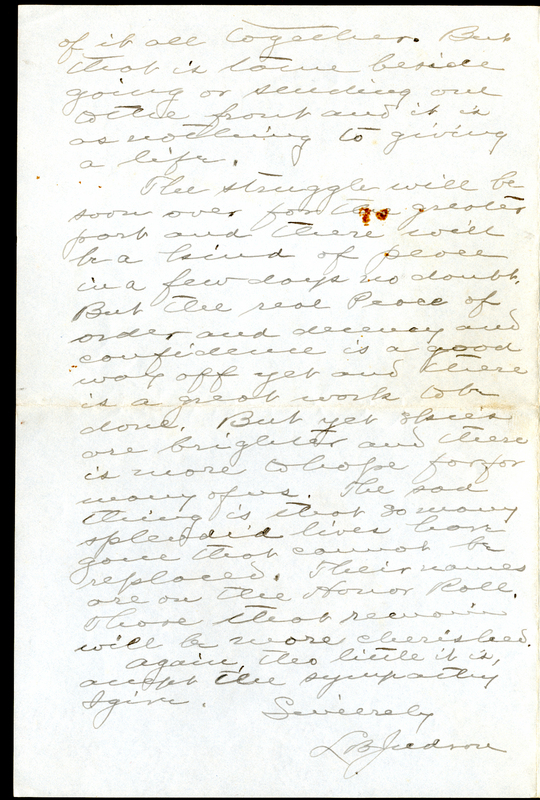 of it all together. But
that is tame beside
going or sending one
to the front and it is
as nothing to giving
a life.
The struggle will be
soon over for the greater
part and there will
be a kind of peace
in a few days no doubt.
But the real Peace of
order and decency and
confidence is a good
way off yet and there
is a great work to be
done. But yet skies
are brighter and there
is more to hope for for
many of us. The sad
thing is that so many
splendid lives have
gone that cannot be
replaced. Their names
are on the Honor Roll.
Those that remain
will be more cherished.
Again, tho little it is,
accept the sympathy
I give.
Sincerely
L B Judson